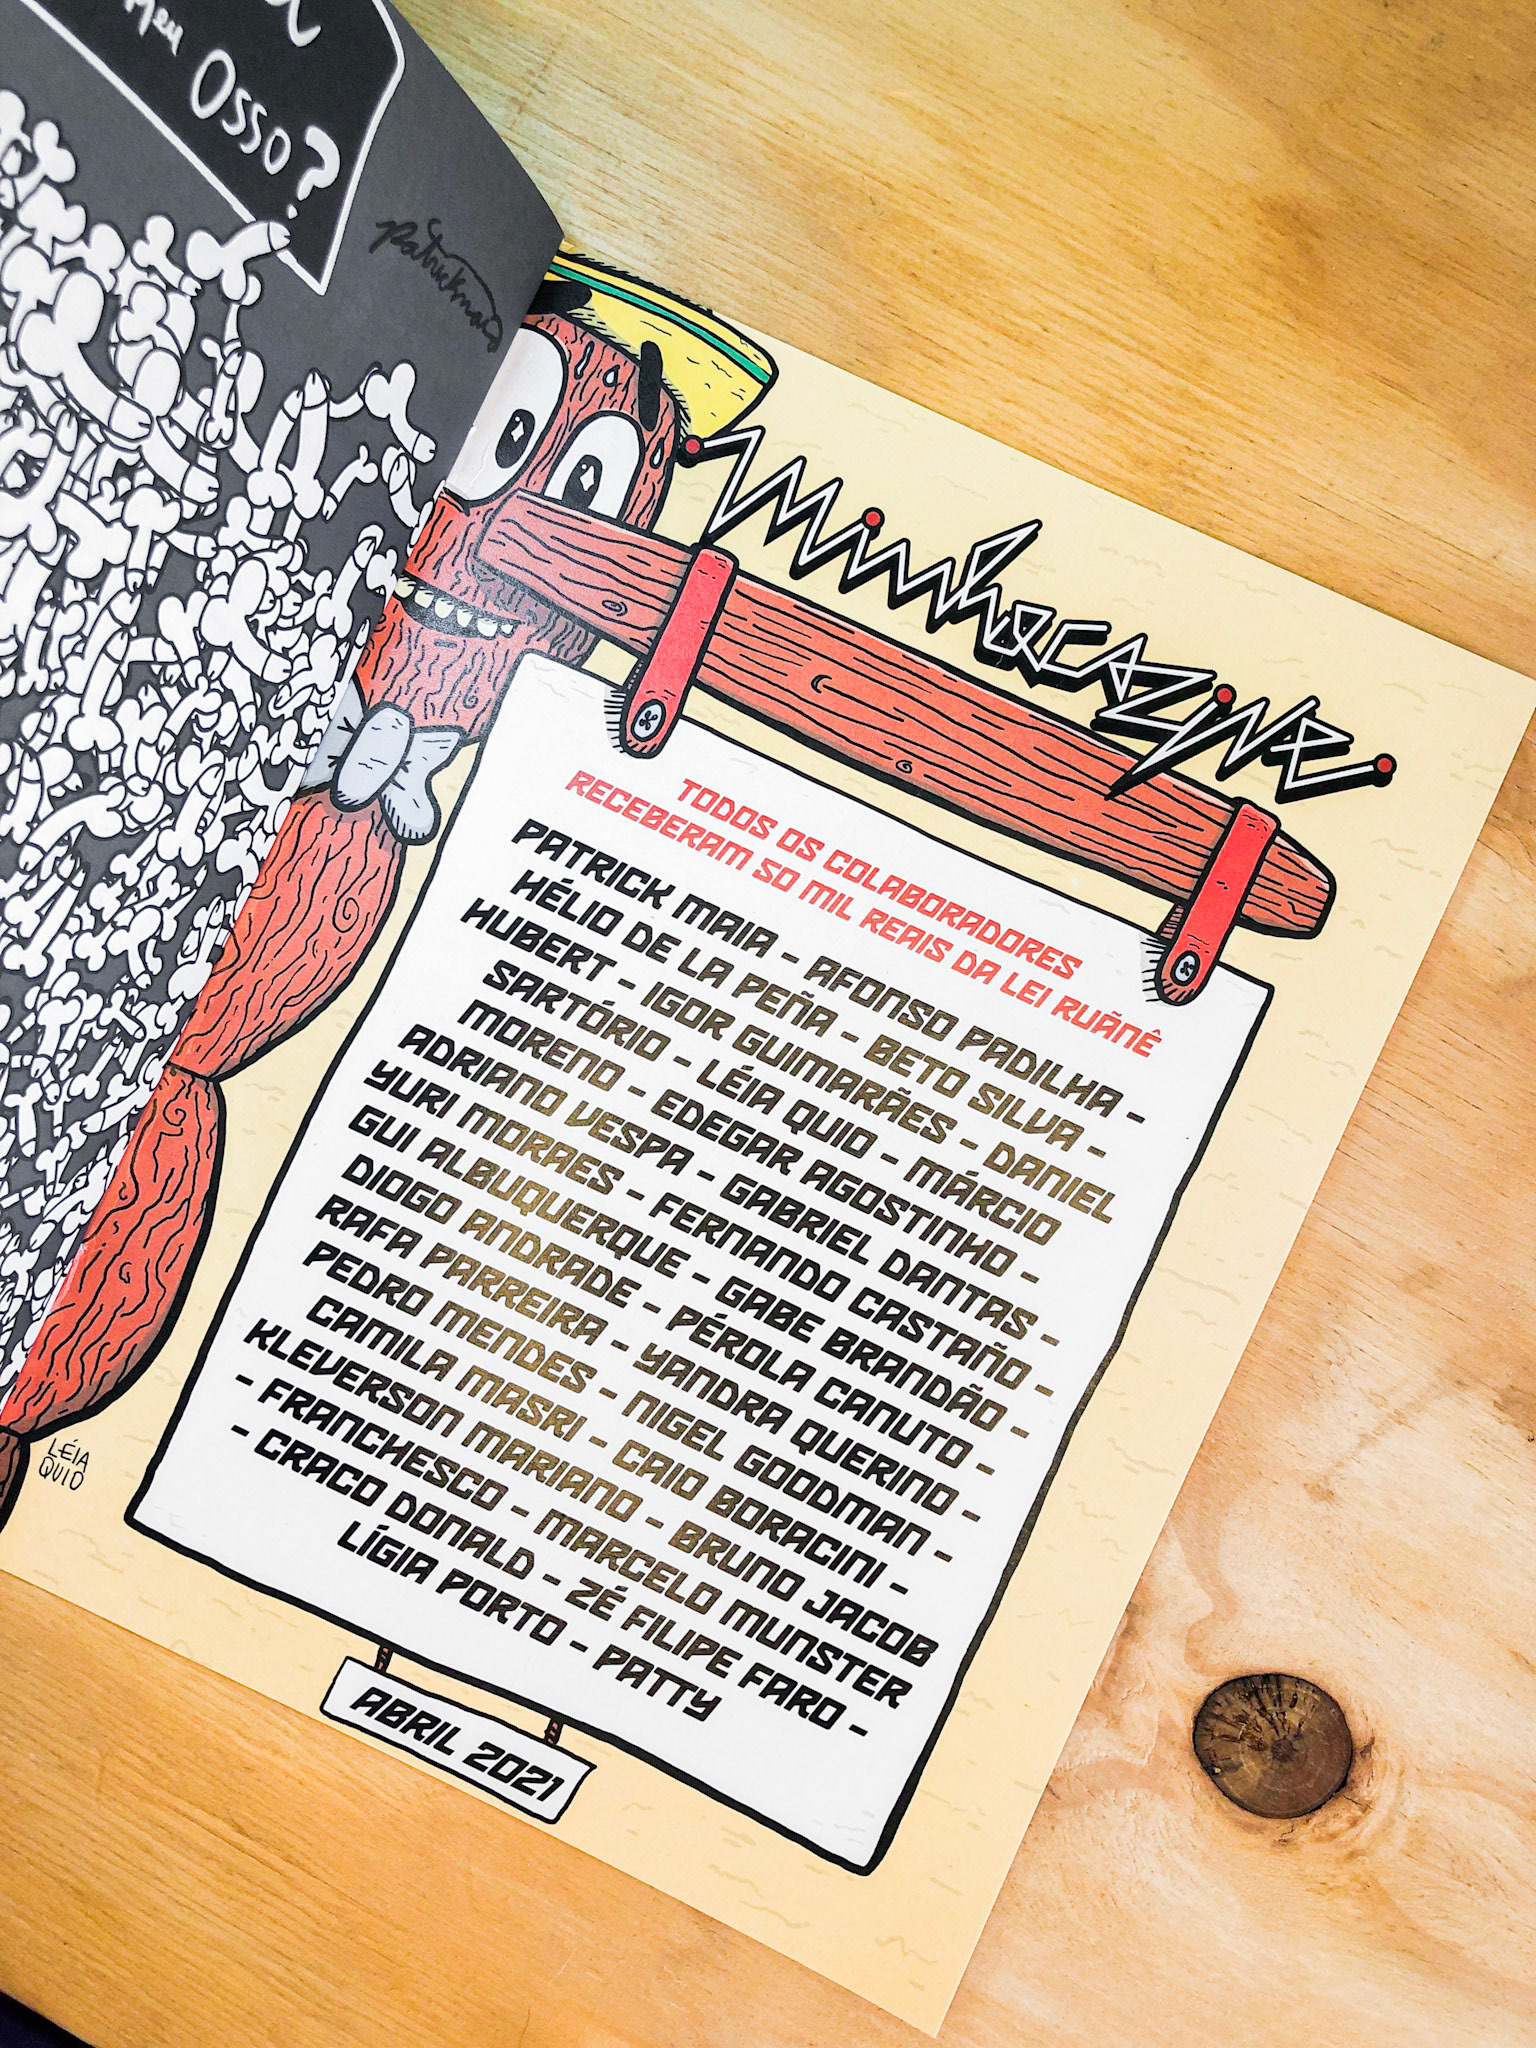 meu
Osso?
Patrickmaia
Minhocazine
TODOS OS COLABORADORES
RECEBERAM 50 MIL REAIS DA LEI RUÃNÊ
PATRICK MAIA - AFONSO PADILHA -
HÉLIO DE LA PEÑA - BETO SILVA -
HUBERT - IGOR GUIMARÃES - DANIEL
SARTÓRIO - LÉIA QUIO - MÁRCIO
MORENO - EDEGAR AGOSTINHO -
ADRIANO VESPA - GABRIEL DANTAS -
YURI MORAES - FERNANDO CASTAÑO -
GUI ALBUQUERQUE - GABE BRANDÃO -
DIOGO ANDRADE - PÉROLA CANUTO -
RAFA PARREIRA - YANDRA QUERINO -
PEDRO MENDES - NIGEL GOODMAN -
CAMILA MASRI - CAIO BORACINI -
KLEVERSON MARIANO - BRUNO JACOB
- FRANCHESCO - MARCELO MUNSTER
- CRACO DONALD - ZÉ FILIPE FARO -
LÍGIA PORTO - PATTY
ABRIL 2021
LÉIA
QUIO